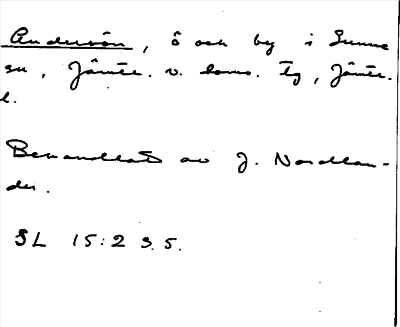 Andersön, ö och by i Sunne
sn, Jämte. v. doms. tg, Jämte.
l.
Behandlat av J. Nordlan-
der.
SL 15:2 s. 5.